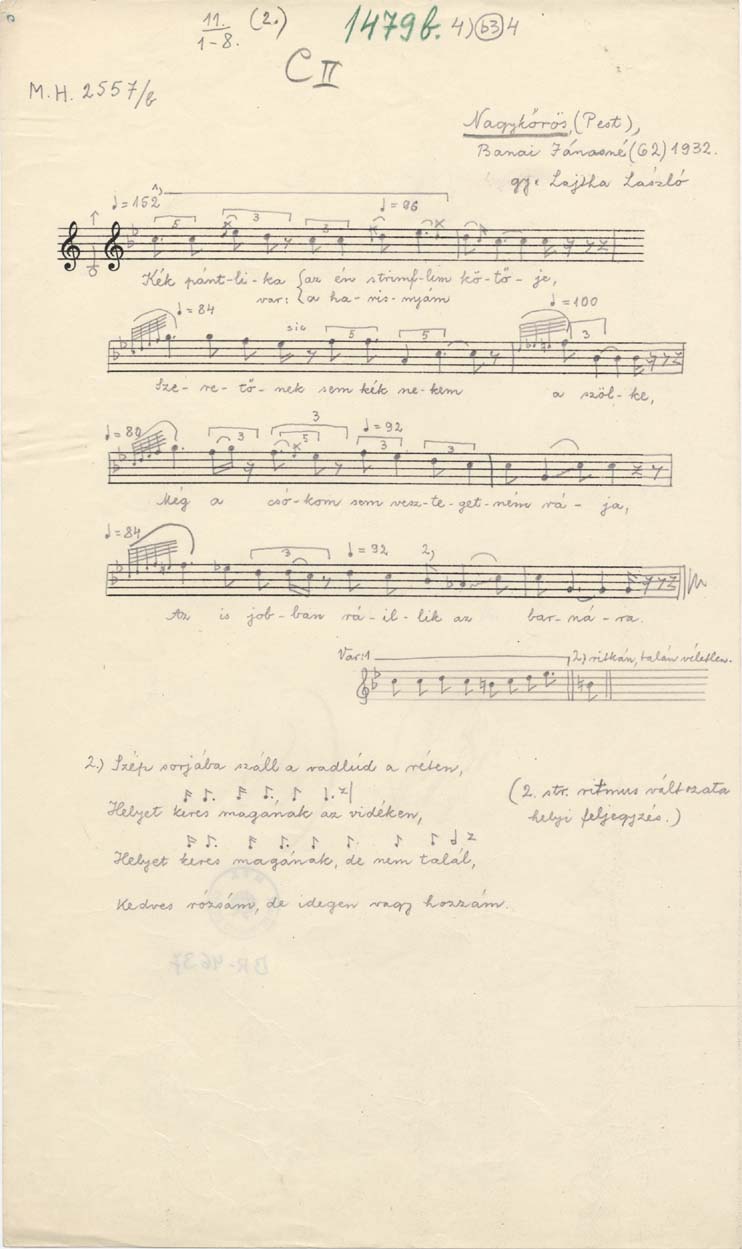 11. (2.) 1479b. 4) b3 4
1-8.
C II
M.H. 2557/b
Nagykőrös, (Pest),
Banai Jánosné (62) 1932.
gy: Lajtha László
♩=152 1) ♩=96
5 3 3
Kék pánt-li-ka {az én strimf-lim kö-tő-je,
var: {a ha-ris-nyám
♩=84 ♩=100
sic 5 5 3
Sze-re-tő-nek sem kék ne-kem a szöl-ke,
♩=80 ♩=92
3 3 5 3 3
Még a csó-kom sem vesz-te-get-ném rá-ja,
♩=84 ♩=92 2,
3
Az is job-ban rá-il-lik az bar-ná-ra.
Var:1 2,) ritkán, talán véletlen.
2.) Szép sorjába száll a vadlúd a réten,
Helyet keres magának az vidéken,
(2. str. ritmus változata
helyi feljegyzés.)
Helyet keres magának, de nem talál,
Kedves rózsám, de idegen vagy hozzám.
BR-4637